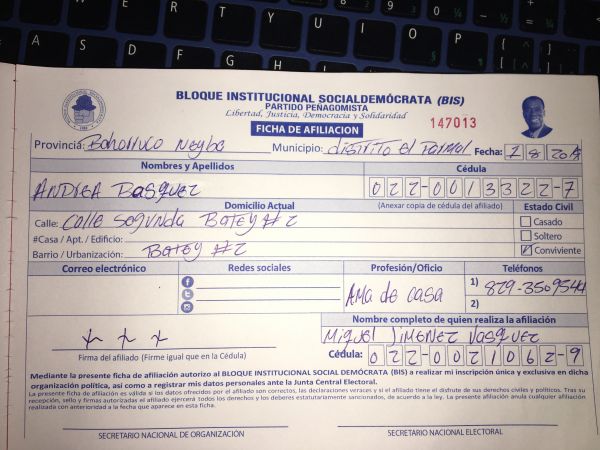 BLOQUE INSTITUCIONAL SOCIALDEMÓCRATA (BIS)
PARTIDO PEÑAGOMISTA
Libertad, Justicia, Democracia y Solidaridad
FICHA DE AFILIACION
147013
Provincia: Bahoruco Neyba Municipio: Distrito el Fecha: 1 8 20
Nombres y Apellidos Cédula
ANDREA BASQUEZ 022-0013322-7
Domicilio Actual (Anexar copia de cédula del afiliado) Estado Civil
Calle: Calle Segunda Batey #2 Casado
#Casa / Apt. / Edificio: Soltero
Barrio / Urbanización: Batey #2 Conviviente
Correo electrónico Redes sociales Profesión/Oficio Teléfonos
Ama de casa 1) 829-3509544
2)
Nombre completo de quien realiza la afiliación
x x x Miguel Jimenez Vasquez
Firma del afiliado (Firme igual que en la Cédula) Cédula: 022-0021062-9
Mediante la presente ficha de afiliación autorizo al BLOQUE INSTITUCIONAL SOCIAL DEMÓCRATA (BIS) a realizar mi inscripción única y exclusiva en dicha
organización política, así como a registrar mis datos personales ante la Junta Central Electoral.
La presente ficha de afiliación es válida si los datos ofrecidos por el afiliado son correctos, las declaraciones veraces y si el afiliado tiene el disfrute de sus derechos civiles y políticos. Tras su
recepción, sello y firmas autorizadas el afiliado ejercerá todos los derechos y los deberes estatutariamente sancionados, de acuerdo a la ley. La presente afiliación anula cualquier afiliación
realizada con anterioridad a la fecha que aparece en esta ficha.
SECRETARIO NACIONAL DE ORGANIZACIÓN SECRETARIO NACIONAL ELECTORAL